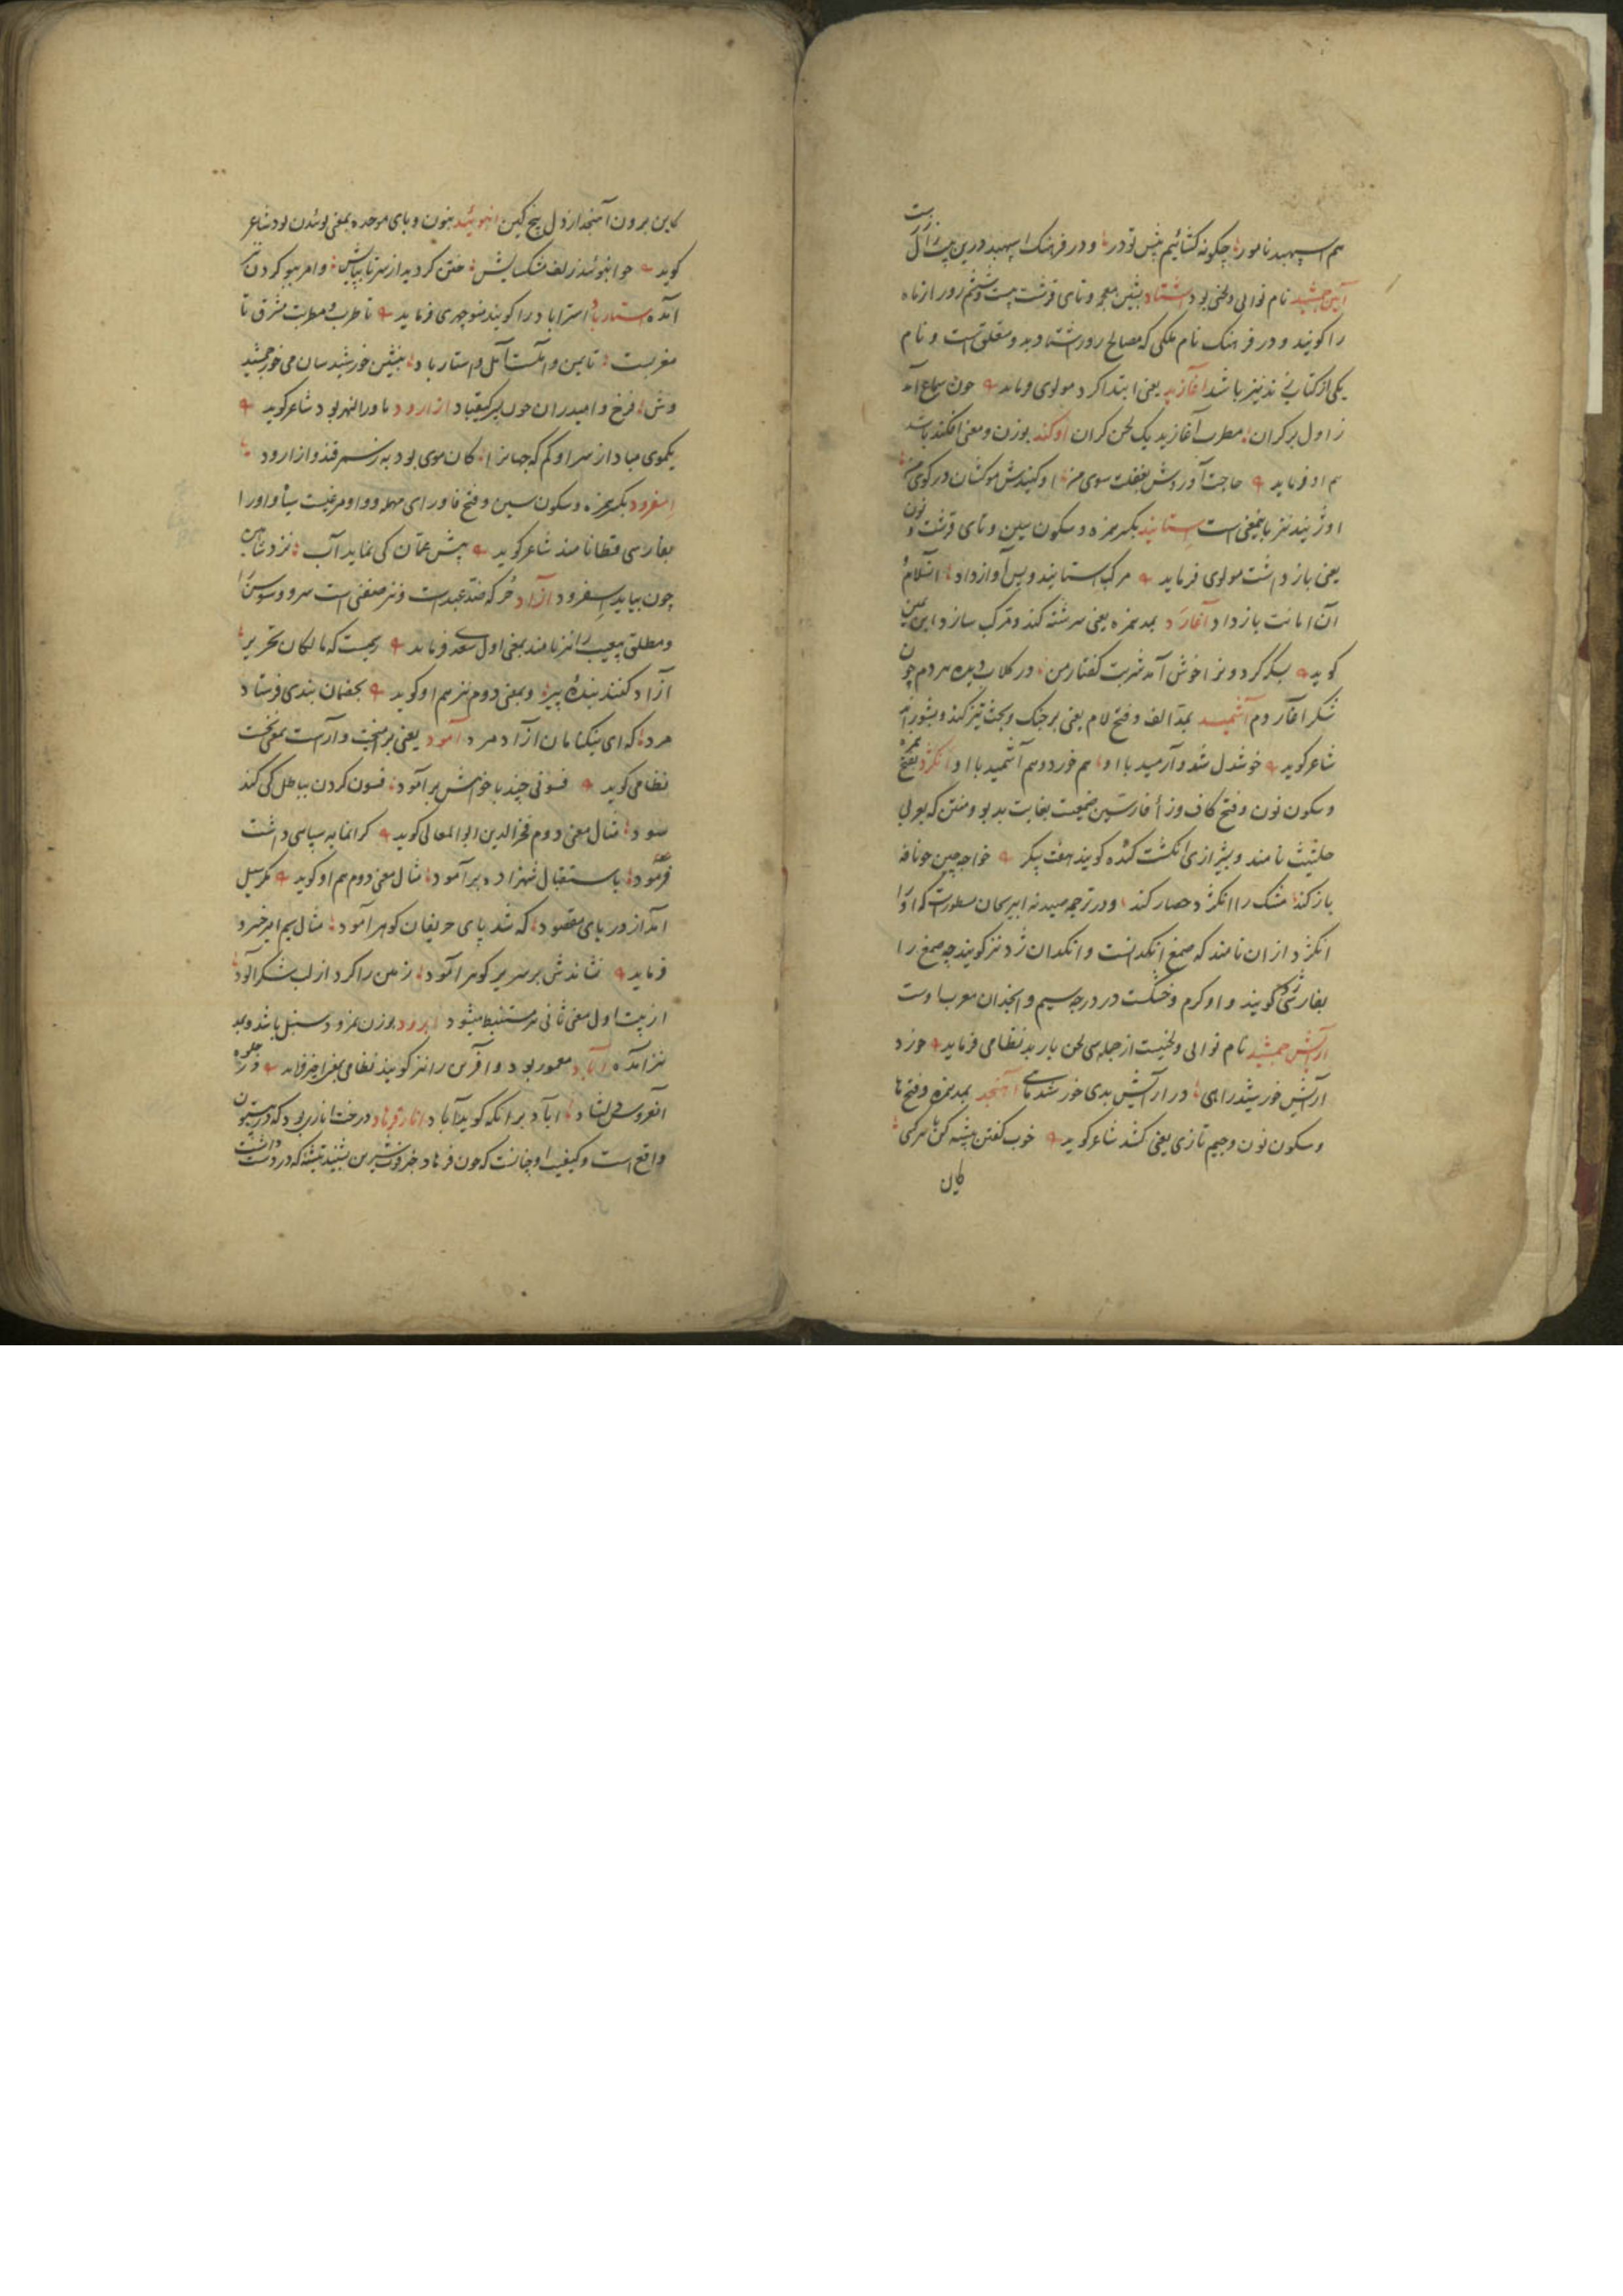 هم سپهبد نامور؛ چگونه کشائیم پیش تو در؛ و در فرهنک اسپهبد درین بیت زال زرست
آیین جمشید نام نوایی و لحنی بود اشتاد بشین معجمه و تای قرشت بیست و ششم روز از ماه
را گویند و در فرهنک نام ملکی که مصالح روز اشتاد بدو متعلق است و نام
یکی از کتاب نیز باشد آغازید یعنی ابتدا کرد مولوی فرماید چون سماع آمد
ز اول بر کران؛ مطرب آغازید یک لحن کران اوکند بوزن و معنی افکند باشد
هم او فرماید حاجت آوردش بغفلت سوی من؛ اوکندش موکشان در کوی من؛
اوژنید نیز باینمعنی است استانید بکسر همزه و سکون سین و تای قرشت و نون
یعنی باز داشت مولوی فرماید مرکب استانید و پس آواز داد؛ السلام
آن امانت باز داد آغارد بمد همزه یعنی سرشته کند و مرکب سازد ابن یمین
کوید بسکر کرد و نزا خوش آمد شربت کفتار من؛ در کلاب دیده هر دم چون
شکر اغاردم آشمید بمد الف و فتح لام یعنی بر جنک و بحث تیز کند و بشوراند
شاعر کوید خوشدل شد و آرمید با او؛ هم خورد و هم آشمید با او انکژد بفتح همزه
و سکون نون و فتح کاف و زأ فارسی صمغیست بغایت بدبو و منتن که بعربی
حلتیت نامند و بشیرازی انکشت کنده کویند هفت پیکر خواجه چین چو نافه
باز کند؛ مشک را انکژد حصار کند؛ و در ترجمه صیدنه ابی ریحان مسطورست که او را
انکژد از ان نامند که صمغ انکدانست و انکدان ژد نیز کویند چه صمغ را
بفارسی ژد کویند و او کرم و خشکست در درجه سیم و انجدان معرب اوست
آرایش جمشید نام نوایی و لحنیست از جمله سی لحن باربد نظامی فرماید چو زد
آرایش خورشید راهی؛ در آرایش بدی خورشید ماهی آهنجد بمد همزه و فتح ها
و سکون نون و جیم تازی یعنی کشد شاعر کوید خوب کفتن پیشه کن با هر کسی؛
کاین
کاین برون آهنجد از دل بیخ کین انبوئید بنون و بای موحده بمعنی بوئیدن بود شاعر
کوید چو انبوئید زلف مشکسایش؛ ختن کردید از سر تا بپایش؛ و امر ببو کردن نیز
آمده ستارباد استراباد را کویند منوچهری فرماید تا طرب و مطربت مشرق تا
مغربست؛ تا یمن و آملست آمل و استارباد؛ بنشین خورشید سان می خور جمشید
وش؛ فرخ و امیدران چون پسر کیقباد ازارود ماوراالنهر بود شاعر کوید
یکموی مباد از سر او کم که جهانرا؛ کان موی بود به ز سمرقند و ازارود
اسفرود بکسر همزه و سکون سین و فتح فا و رای مهمله و واو مرغیست سیاه و او را
بفارسی قطا نامند شاعر کوید پیش عمان کی نماید آب؛ نزد شاهین
چون بیاید اسفرود آزاد حر که ضد عبدست و نیز صنفی است سرو و سوسن را
و مطلق بیعیب را نیز نامند بمعنی اول سعدی فرماید رسمیست که مالکان تحریر؛
آزاد کنند بندهٔ پیر؛ و بمعنی دوم نیز هم او کوید بخضمان بندی فرستاد
مرد؛ که ای نیکنامان آزاد مرد آمود یعنی برامیخت و آراست بمعنی نخست
نظامی کوید فسونی چند با خواهش برآمود؛ فسون کردن بباطل کی کند
سود؛ مثال معنی دوم فخر الدین ابو المعالی کوید کرانمایه سپاسی داشت
فرمود؛ باستقبال شهزاده برآمود؛ مثال معنی دوم هم او کوید مکر سیل
آمد از دریای مقصود؛ که شد پای حریفان کوهر آمود؛ مثال سیم امیر خسرو
فرماید نشاندش بر سریر کوهر آمود؛ زمین را کرد از لب شکر آلود؛
از بیت اول معنی ثانی هم مستنبط میشود ابرود بوزن امرود سنبل باشد و بمد
نیز آمده آباد معمور بود و آفرین را نیز کویند نظامی بمعنی اخیر فرماید در جلوه
آنعروس دلشاد؛ آباد بر آنکه کوید آباد انار فرهاد درخت اناری بود که در بیستون
واقع است و کیفیت او چنانست که چون فرهاد خبر فوت شیرین بشنید تیشه که در دست داشت